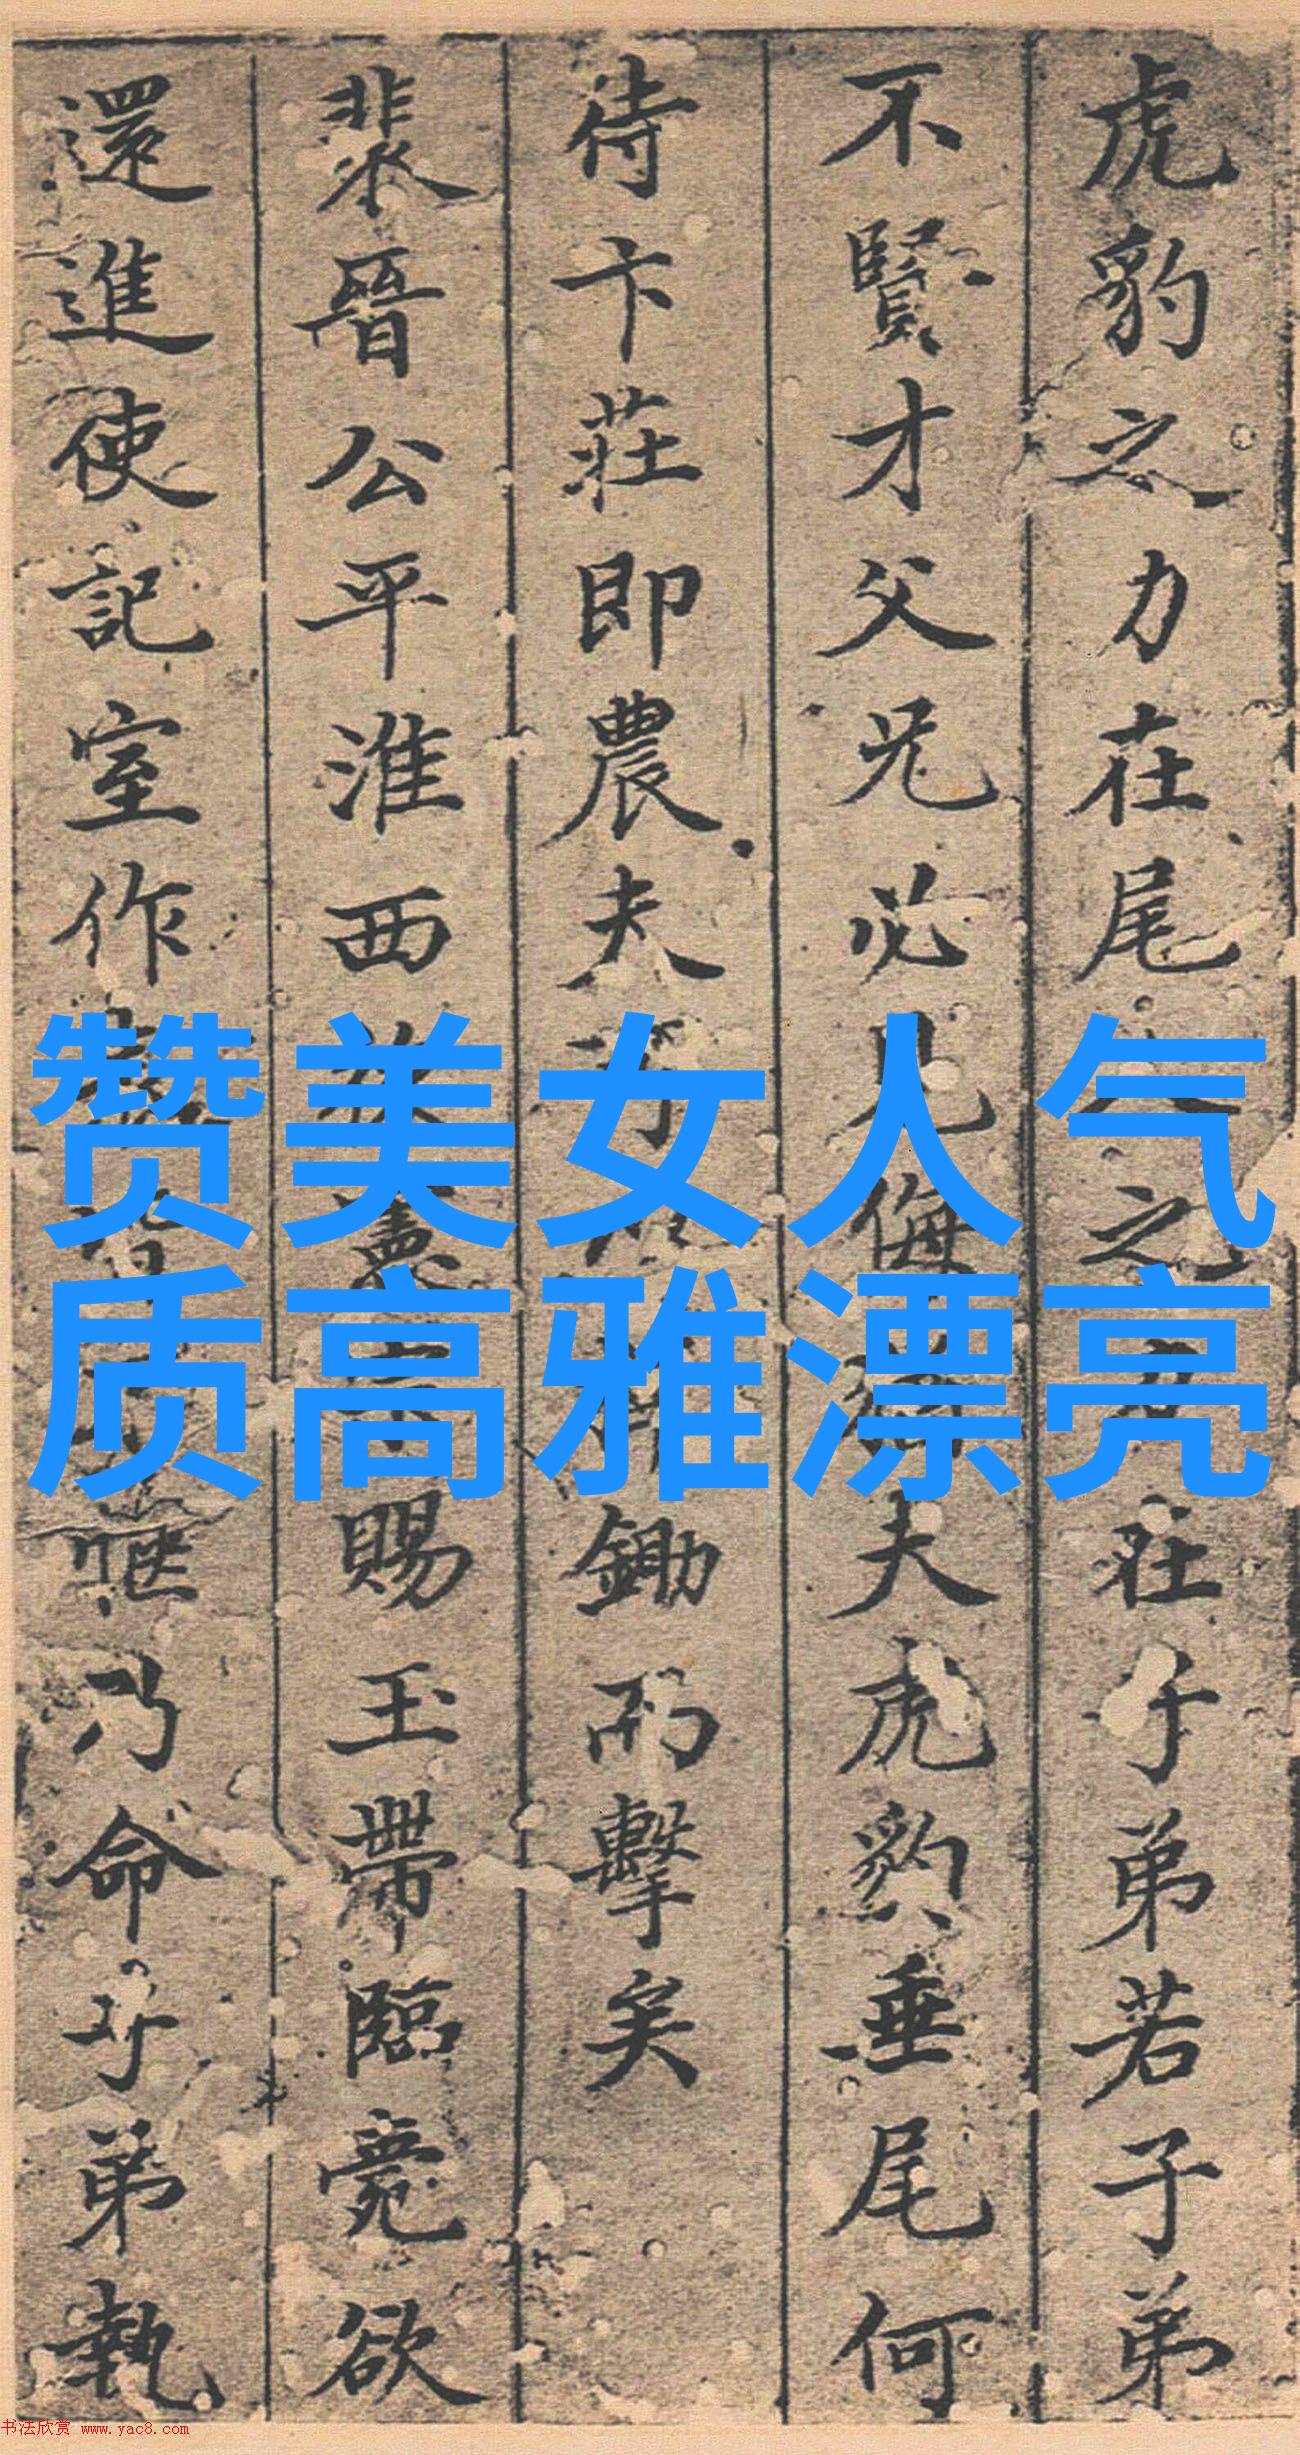 虎豹之力在尾之在子弟若子弟
不賢才父兄必見侮夫虎豹垂尾何
待卞莊即農夫鋤而擊矣
裴晉公平淮西賜玉帶臨薨欲
還進使記室作愜乃命子弟執
赞美女人气
质高雅漂亮
书法欣赏 www.yac8.com